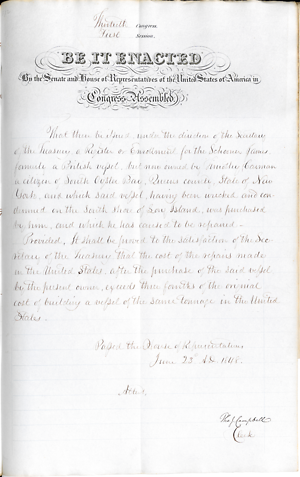 Thirtieth Congress
First Session
BE IT ENACTED
By the Senate and House of Representatives of the United States of America in
Congress Assembled,
That there be issued, under the direction of the Secretary
of the Treasury a Register or Enrolment for the Schooner James,
formerly a British vessel but now owned by
a citizen of South Oyster Bay, Queens county, State of New
York, and which said vessel, having been wrecked and con
demned on the South Shore of Long Island, was purchased
by him, and which he has caused to be repaired—
Provided, It shall be proved to the satisfaction of the Sec
retary of the Treasury that the cost of the repairs made
in the United States, after the purchase of the said vessel
by the present owner, exceeds three fourths of the original
cost of building a vessel of the same tonnage in the United
States—
Passed the House of Representatives
June 23d AD. 1848.
Attest,
Tho J Campbell
Clerk